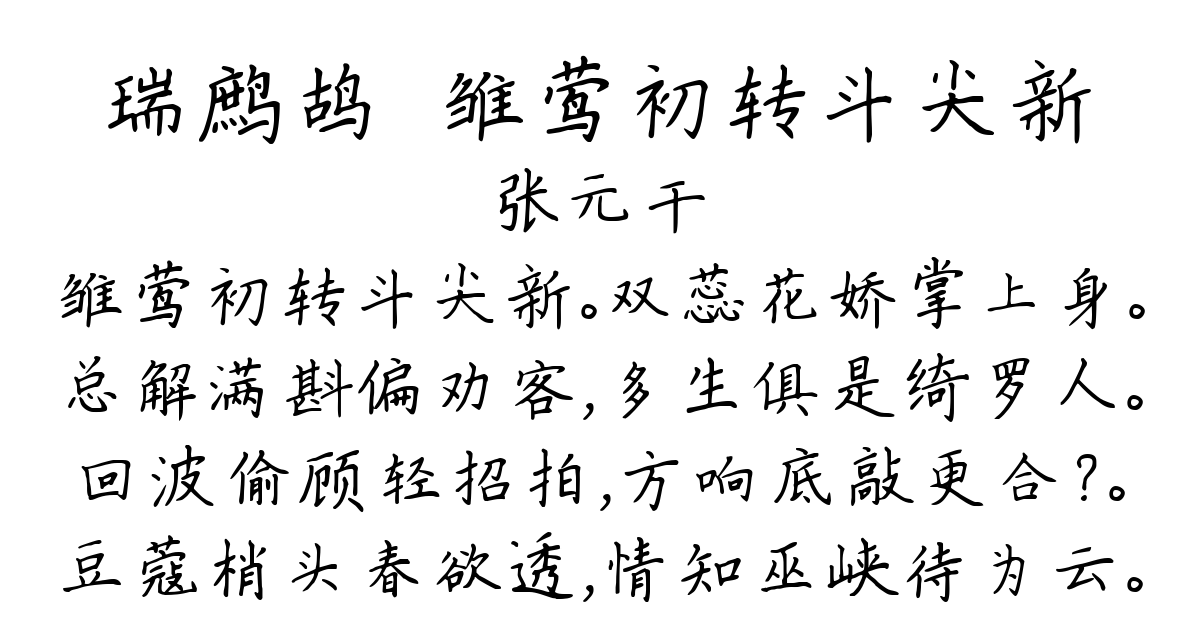 瑞鹧鸪 雏莺初转斗尖新
张元干
雏莺初转斗尖新。双蕊花娇掌上身。
总解满斟偏劝客,多生俱是绮罗人。
回波偷顾轻招拍,方响底敲更合?。
豆蔻梢头春欲透,情知巫峡待为云。